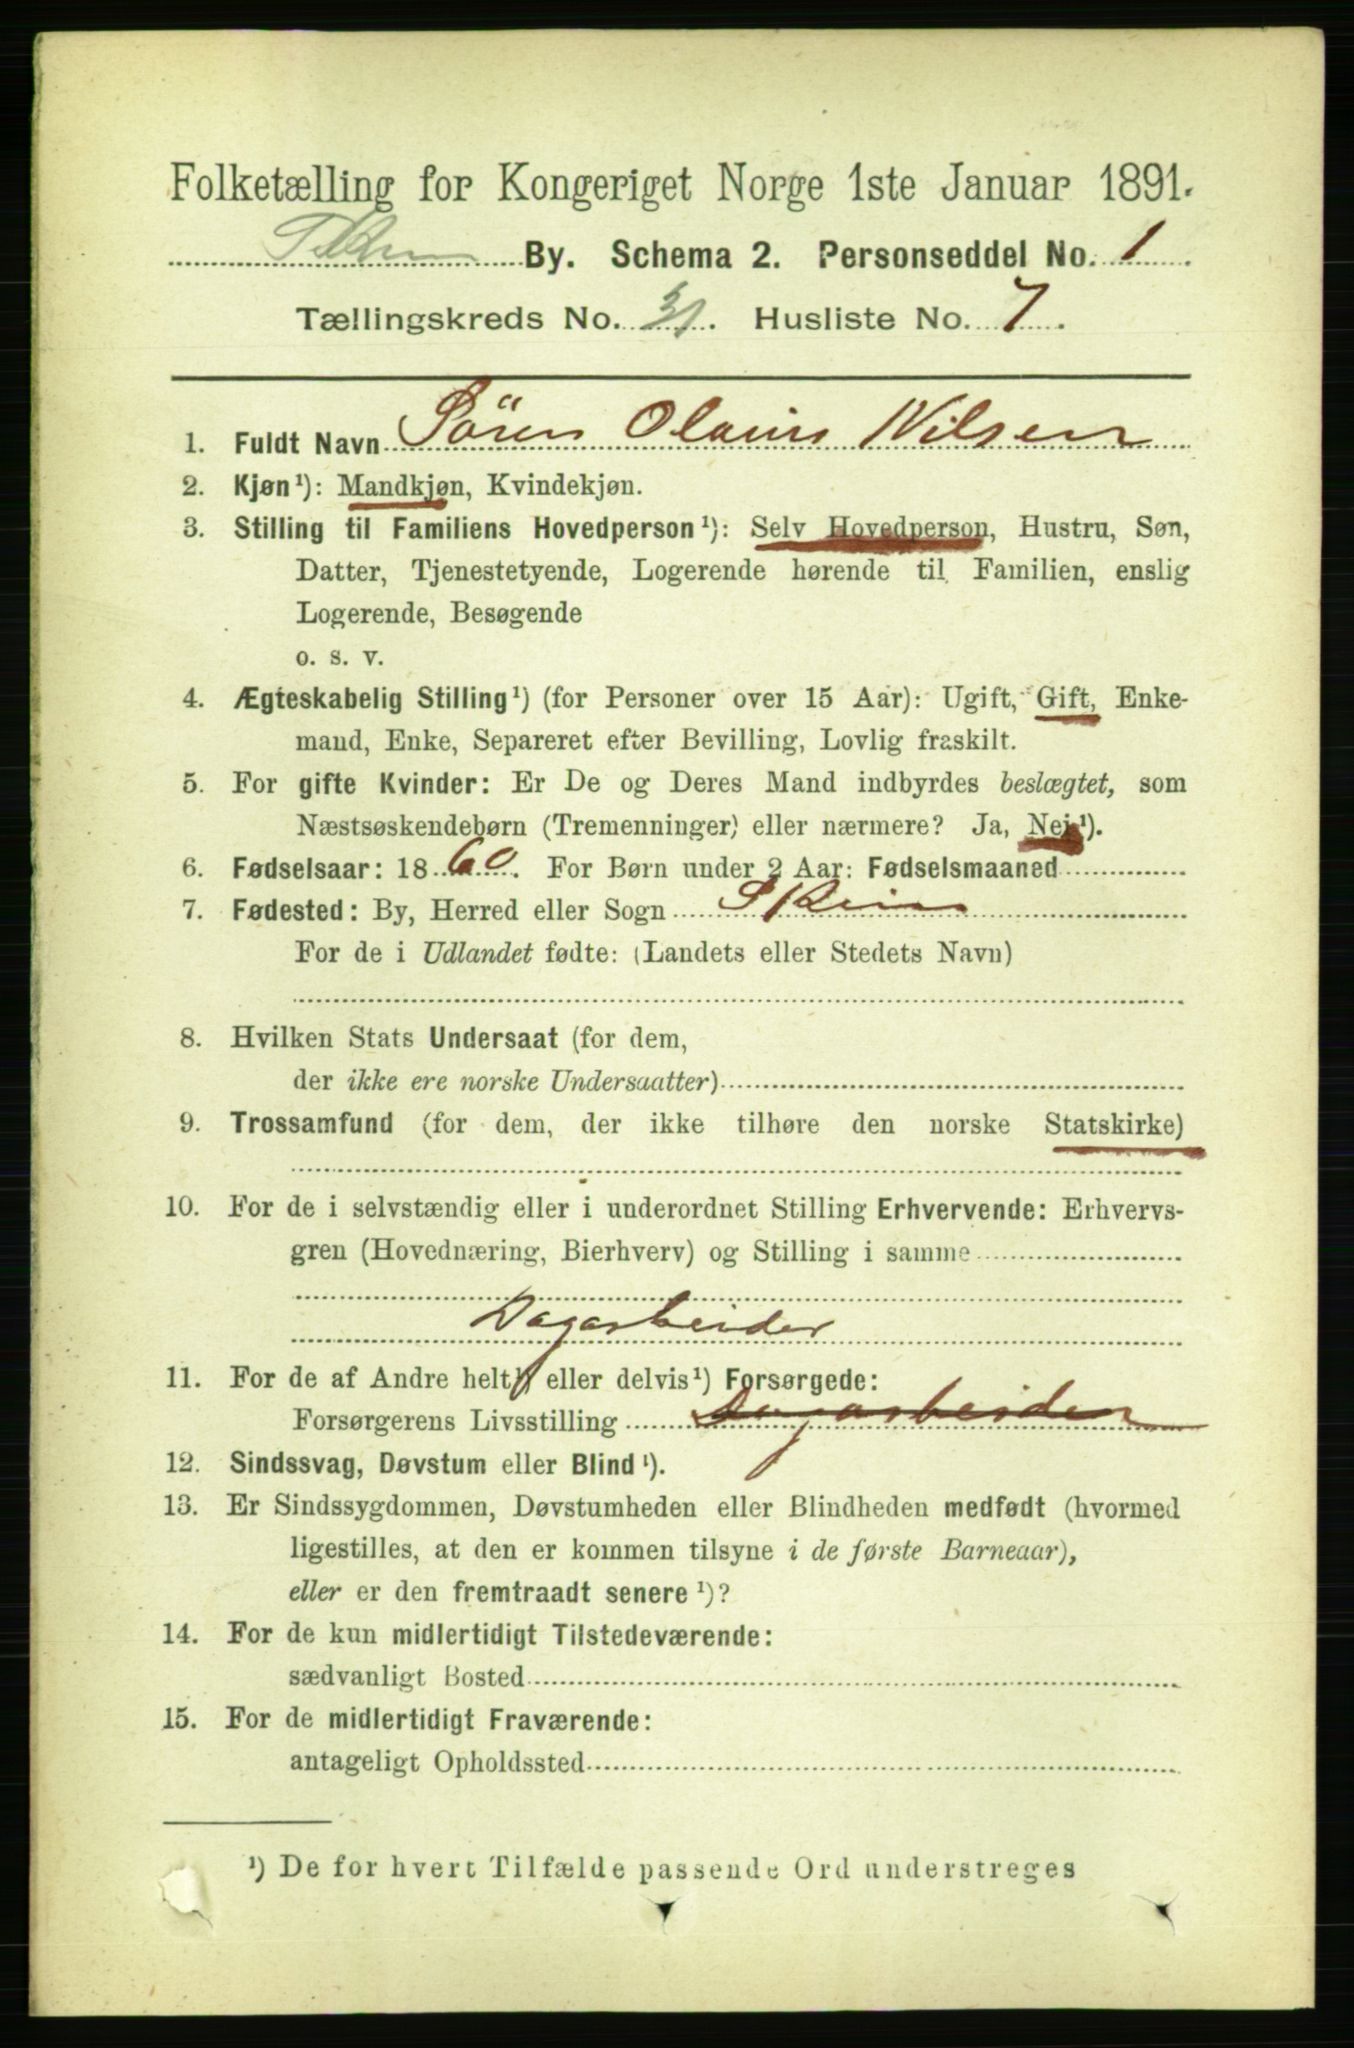 Folketælling for Kongeriget Norge 1ste Januar 1891.
Skien By. Schema 2. Personseddel No. 1.
Tællingskreds No. 31. Husliste No. 7.
1. Fuldt Navn Sören Olaus Nilsen
2. Kjøn¹): Mandkjøn, Kvindekjøn.
3. Stilling til Familiens Hovedperson¹): Selv Hovedperson, Hustru, Søn,
Datter, Tjenestetyende, Logerende hørende til Familien, enslig
Logerende, Besøgende
o. s. v.
4. Ægteskabelig Stilling¹) (for Personer over 15 Aar): Ugift, Gift, Enke-
mand, Enke, Separeret efter Bevilling, Lovlig fraskilt.
5. For gifte Kvinder: Er De og Deres Mand indbyrdes beslægtet, som
Næstsøskendebørn (Tremenninger) eller nærmere? Ja, Nej¹).
6. Fødselsaar: 1860. For Børn under 2 Aar: Fødselsmaaned
7. Fødested: By, Herred eller Sogn Skien
For de i Udlandet fødte: (Landets eller Stedets Navn)
8. Hvilken Stats Undersaat (for dem,
der ikke ere norske Undersaatter)
9. Trossamfund (for dem, der ikke tilhøre den norske Statskirke)
10. For de i selvstændig eller i underordnet Stilling Erhvervende: Erhvervs-
gren (Hovednæring, Bierhverv) og Stilling i samme
Dagarbeider
11. For de af Andre helt¹) eller delvis¹) Forsørgede:
Forsørgerens Livsstilling Dagarbeider
12. Sindssvag, Døvstum eller Blind¹).
13. Er Sindssygdommen, Døvstumheden eller Blindheden medfødt (hvormed
ligestilles, at den er kommen tilsyne i de første Barneaar),
eller er den fremtraadt senere¹)?
14. For de kun midlertidigt Tilstedeværende:
sædvanligt Bosted
15. For de midlertidigt Fraværende:
antageligt Opholdssted
¹) De for hvert Tilfælde passende Ord understreges